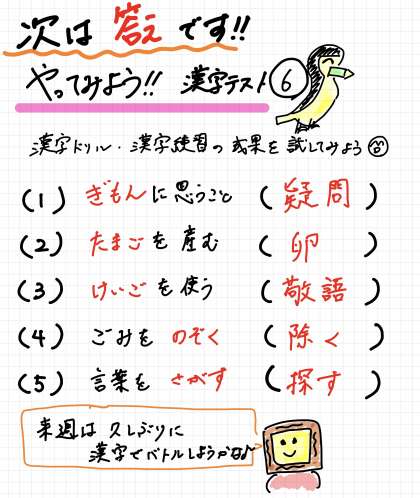 次は 答え です!!
やってみよう!! 漢字テスト⑥
漢字ドリル・漢字練習の成果を試してみよう
(1) ぎもんに思うこと (疑問)
(2) たまごを産む (卵)
(3) けいごを使う (敬語)
(4) ごみを のぞく (除く)
(5) 言葉を さがす (探す)
来週は 久しぶりに
漢字でバトルしようかな♪